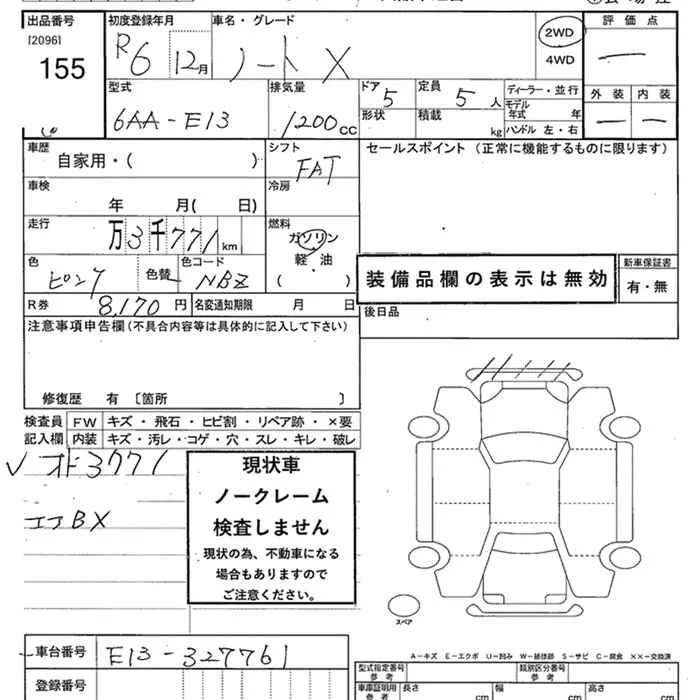 出品番号 初度登録年月 車名・グレード 評価点
[2096] 155 R6 12月 ノート X 2WD ー
4WD
型式 排気量 ドア 定員 ディーラー・並行 外装 内装
6AA-E13 1200cc 5 5人 モデル年式 年 ー ー
形状 積載 kg ハンドル 左・右
車歴 シフト セールスポイント (正常に機能するものに限ります)
自家用・( ) FAT
車検 冷房
年 月( 日)
走行 燃料
万 3千771km ガソリン
軽・油
色 色替 色コード ( ) 装備品欄の表示は無効 新車保証書
ピンク NBZ 有・無
R券 8,170円 名変通知期限 月 日 後日品
注意事項申告欄(不具合内容等は具体的に記入して下さい)
修復歴 有 〔箇所 〕
検査員 FW キズ・飛石・ヒビ割・リペア跡・×要
記入欄 内装 キズ・汚レ・コゲ・穴・スレ・キレ・破レ
✓オド3771
エコBX
現状車
ノークレーム
検査しません
現状の為、不動車になる
場合もありますので
ご注意ください。
スペア
A-キズ E-エクボ U-凹み W-補修跡 S-サビ C-腐食 ××-交換済
車台番号 E13-327761
登録番号
型式指定番号 参考 類別区分番号 参考
車庫証明用 参考 長さ cm 幅 cm 高さ cm